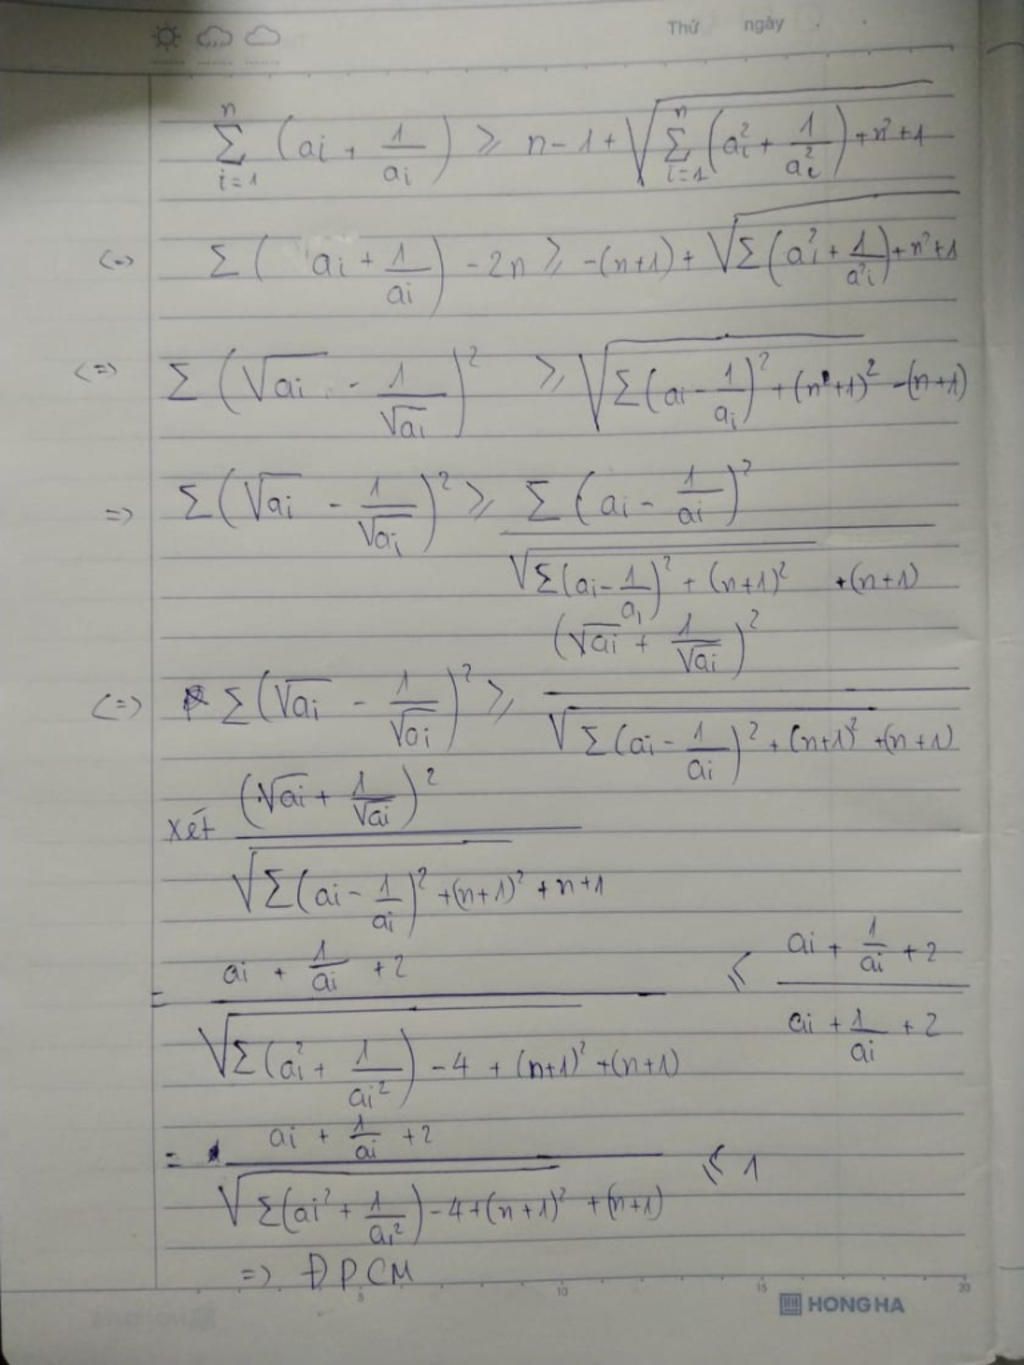 Thứ ngày
\sum_{i=1}^{n} (ai + \frac{1}{ai}) ⩾ n-1+ \sqrt{\sum_{i=1}^{n} (a_i^2 + \frac{1}{a_i^2}) + n^2+1}
<=> Σ( ai + \frac{1}{ai}) - 2n ⩾ -(n+1) + \sqrt{Σ(a^2i + \frac{1}{a^2i}) + n^2+1}
<=> Σ(\sqrt{ai} - \frac{1}{\sqrt{ai}})^2 ⩾ \sqrt{Σ(ai - \frac{1}{ai})^2 + (n+1)^2} - (n+1)
=> Σ(\sqrt{ai} - \frac{1}{\sqrt{ai}})^2 ⩾ \frac{Σ(ai - \frac{1}{ai})^2}{\sqrt{Σ(ai - \frac{1}{ai})^2 + (n+1)^2} + (n+1)}
<=> Σ(\sqrt{ai} - \frac{1}{\sqrt{ai}})^2 ⩾ \frac{(\sqrt{ai} + \frac{1}{\sqrt{ai}})^2}{\sqrt{Σ(ai - \frac{1}{ai})^2 + (n+1)^2} + (n+1)}
Xét \frac{(\sqrt{ai} + \frac{1}{\sqrt{ai}})^2}{\sqrt{Σ(ai - \frac{1}{ai})^2 + (n+1)^2} + n+1}
= \frac{ai + \frac{1}{ai} + 2}{\sqrt{Σ(ai^2 + \frac{1}{ai^2}) - 4 + (n+1)^2} + (n+1)} ⩽ \frac{ai + \frac{1}{ai} + 2}{ai + \frac{1}{ai} + 2}
= \frac{ai + \frac{1}{ai} + 2}{\sqrt{Σ(ai^2 + \frac{1}{ai^2}) - 4 + (n+1)^2} + (n+1)} ⩽ 1
=> ĐPCM
5 10 15 20
HONG HA